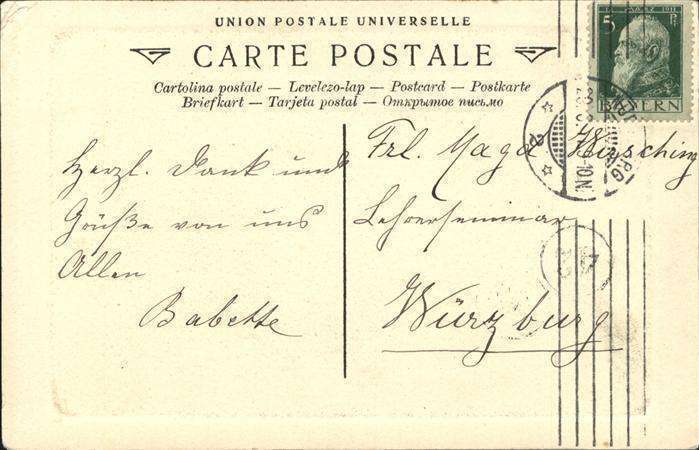 UNION POSTALE UNIVERSELLE
CARTE POSTALE
Cartolina postale — Levelezo-lap — Postcard — Postkarte
Briefkart — Tarjeta postal — Открытое письмо
Herzl. Dank und
Grüße von uns
Allen
Babette
Frl. Magd. Hirsching
Lehrerseminar
Würzburg
5 Pf
1911
BAYERN